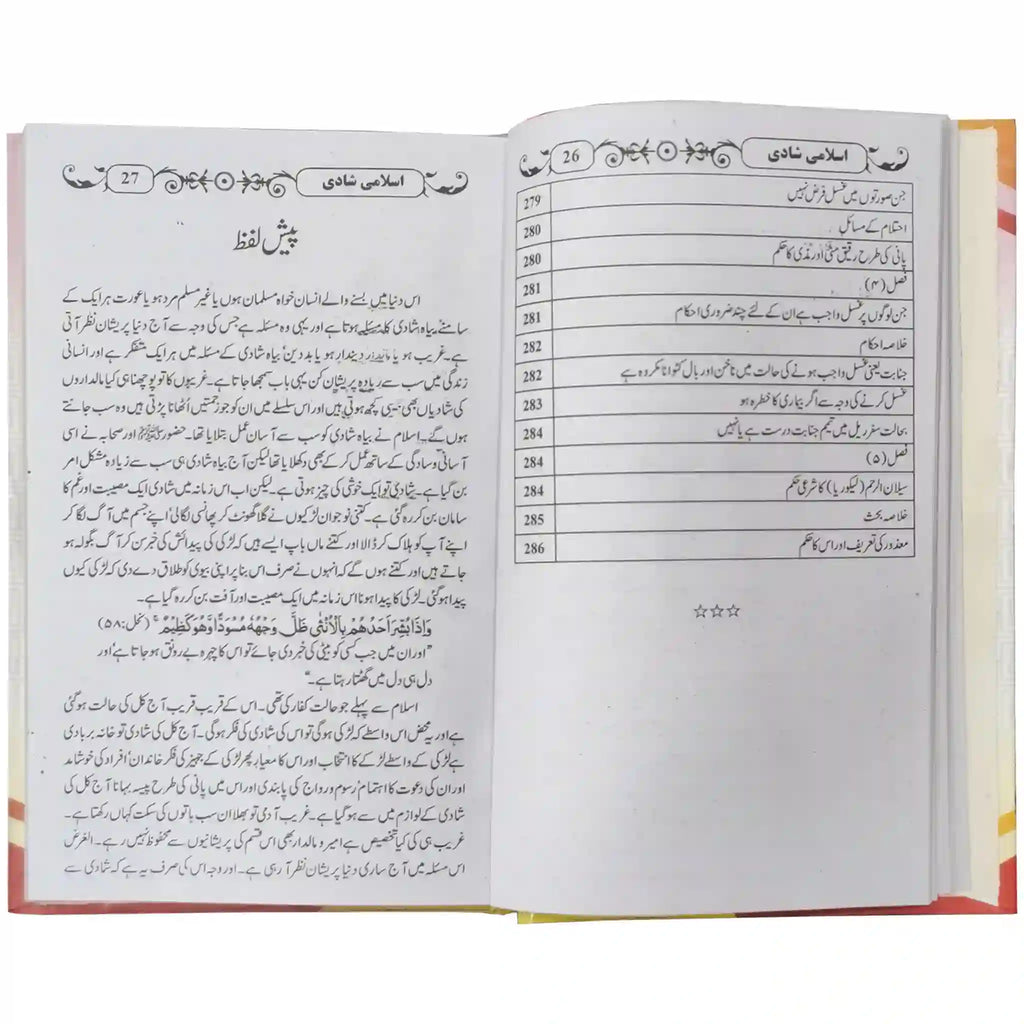 اسلامی شادی 26
جن صورتوں میں غسل فرض نہیں 279
احتلام کے مسائل 280
پانی کی طرح رقیق منی اور مذی کا حکم 280
فصل (۴) 281
جن لوگوں پر غسل واجب ہے ان کے لئے چند ضروری احکام 281
خلاصہ احکام 282
جنابت یعنی غسل واجب ہونے کی حالت میں ناخن اور بال کٹوانا مکروہ ہے 282
غسل کرنے کی وجہ سے اگر بیماری کا خطرہ ہو 283
بحالت سفر ریل میں تیمم جنابت درست ہے یا نہیں 284
فصل (۵) 284
سیلان الرحم (لیکوریا) کا شرعی حکم 284
خلاصہ بحث 285
معذور کی تعریف اور اس کا حکم 286
☆☆☆
اسلامی شادی 27
پیش لفظ
اس دنیا میں بسنے والے انسان خواہ مسلمان ہوں یا غیر مسلم مرد ہو یا عورت ہر ایک کے
سامنے بیاہ شادی کا مسئلہ ہوتا ہے اور یہی وہ مسئلہ ہے جس کی وجہ سے آج دنیا پریشان نظر آتی
ہے۔ غریب ہو یا مالدار دیندار ہو یا بد دین، بیاہ شادی کے مسئلہ میں ہر ایک متفکر ہے اور انسانی
زندگی میں سب سے زیادہ پریشان کن یہی باب سمجھا جاتا ہے۔ غریبوں کا تو پوچھنا ہی کیا مالداروں
کی شادیاں بھی جیسی کچھ ہوتی ہیں اور اس سلسلے میں ان کو جو زحمتیں اُٹھانا پڑتی ہیں وہ سب جانتے
ہوں گے۔ اسلام نے بیاہ شادی کو سب سے آسان عمل بتلایا تھا۔ حضور ﷺ اور صحابہ نے اسی
آسانی و سادگی کے ساتھ عمل کر کے بھی دکھلایا تھا لیکن آج بیاہ شادی ہی سب سے زیادہ مشکل امر
بن گیا ہے۔ شادی تو ایک خوشی کی چیز ہوتی ہے۔ لیکن اب اس زمانہ میں شادی ایک مصیبت اور غم کا
سامان بن کر رہ گئی ہے۔ کتنی نوجوان لڑکیوں نے گلا گھونٹ کر پھانسی لگالی، اپنے جسم میں آگ لگا کر
اپنے آپ کو ہلاک کر ڈالا اور کتنے ماں باپ ایسے ہیں کہ لڑکی کی پیدائش کی خبر سن کر آگ بگولہ ہو
جاتے ہیں اور کتنے ہوں گے کہ انہوں نے صرف اس بنا پر اپنی بیوی کو طلاق دے دی کہ لڑکی کیوں
پیدا ہو گئی۔ لڑکی کا پیدا ہونا اس زمانہ میں ایک مصیبت اور آفت بن کر رہ گیا ہے۔
وَإِذَا بُشِّرَ أَحَدُهُمْ بِالْأُنْثَى ظَلَّ وَجْهُهُ مُسْوَدًّا وَهُوَ كَظِيمٌ (نحل: ۵۸)
"اور ان میں جب کسی کو بیٹی کی خبر دی جائے تو اس کا چہرہ بے رونق ہو جاتا ہے اور
دل ہی دل میں گھٹتا رہتا ہے۔"
اسلام سے پہلے جو حالت کفار کی تھی۔ اس کے قریب قریب آج کل کی حالت ہو گئی
ہے اور یہ محض اس واسطے کہ لڑکی ہو گی تو اس کی شادی کی فکر ہو گی۔ آج کل کی شادی تو خانہ بربادی
ہے لڑکی کے واسطے لڑکے کا انتخاب اور اس کا معیار پھر لڑکی کے جہیز کی فکر خاندان، افراد کی خوشامد
اور ان کی دعوت کا اہتمام، رسوم و رواج کی پابندی اور اس میں پانی کی طرح پیسہ بہانا آج کل کی
شادی کے لوازم میں سے ہو گیا ہے۔ غریب آدمی تو بھلا ان سب باتوں کی سکت کہاں رکھتا ہے۔
غریب ہی کی کیا تخصیص ہے امیر و مالدار بھی اس قسم کی پریشانیوں سے محفوظ نہیں رہے۔ الغرض
اس مسئلہ میں آج ساری دنیا پریشان نظر آ رہی ہے۔ اور وجہ اس کی صرف یہ ہے کہ شادی سے